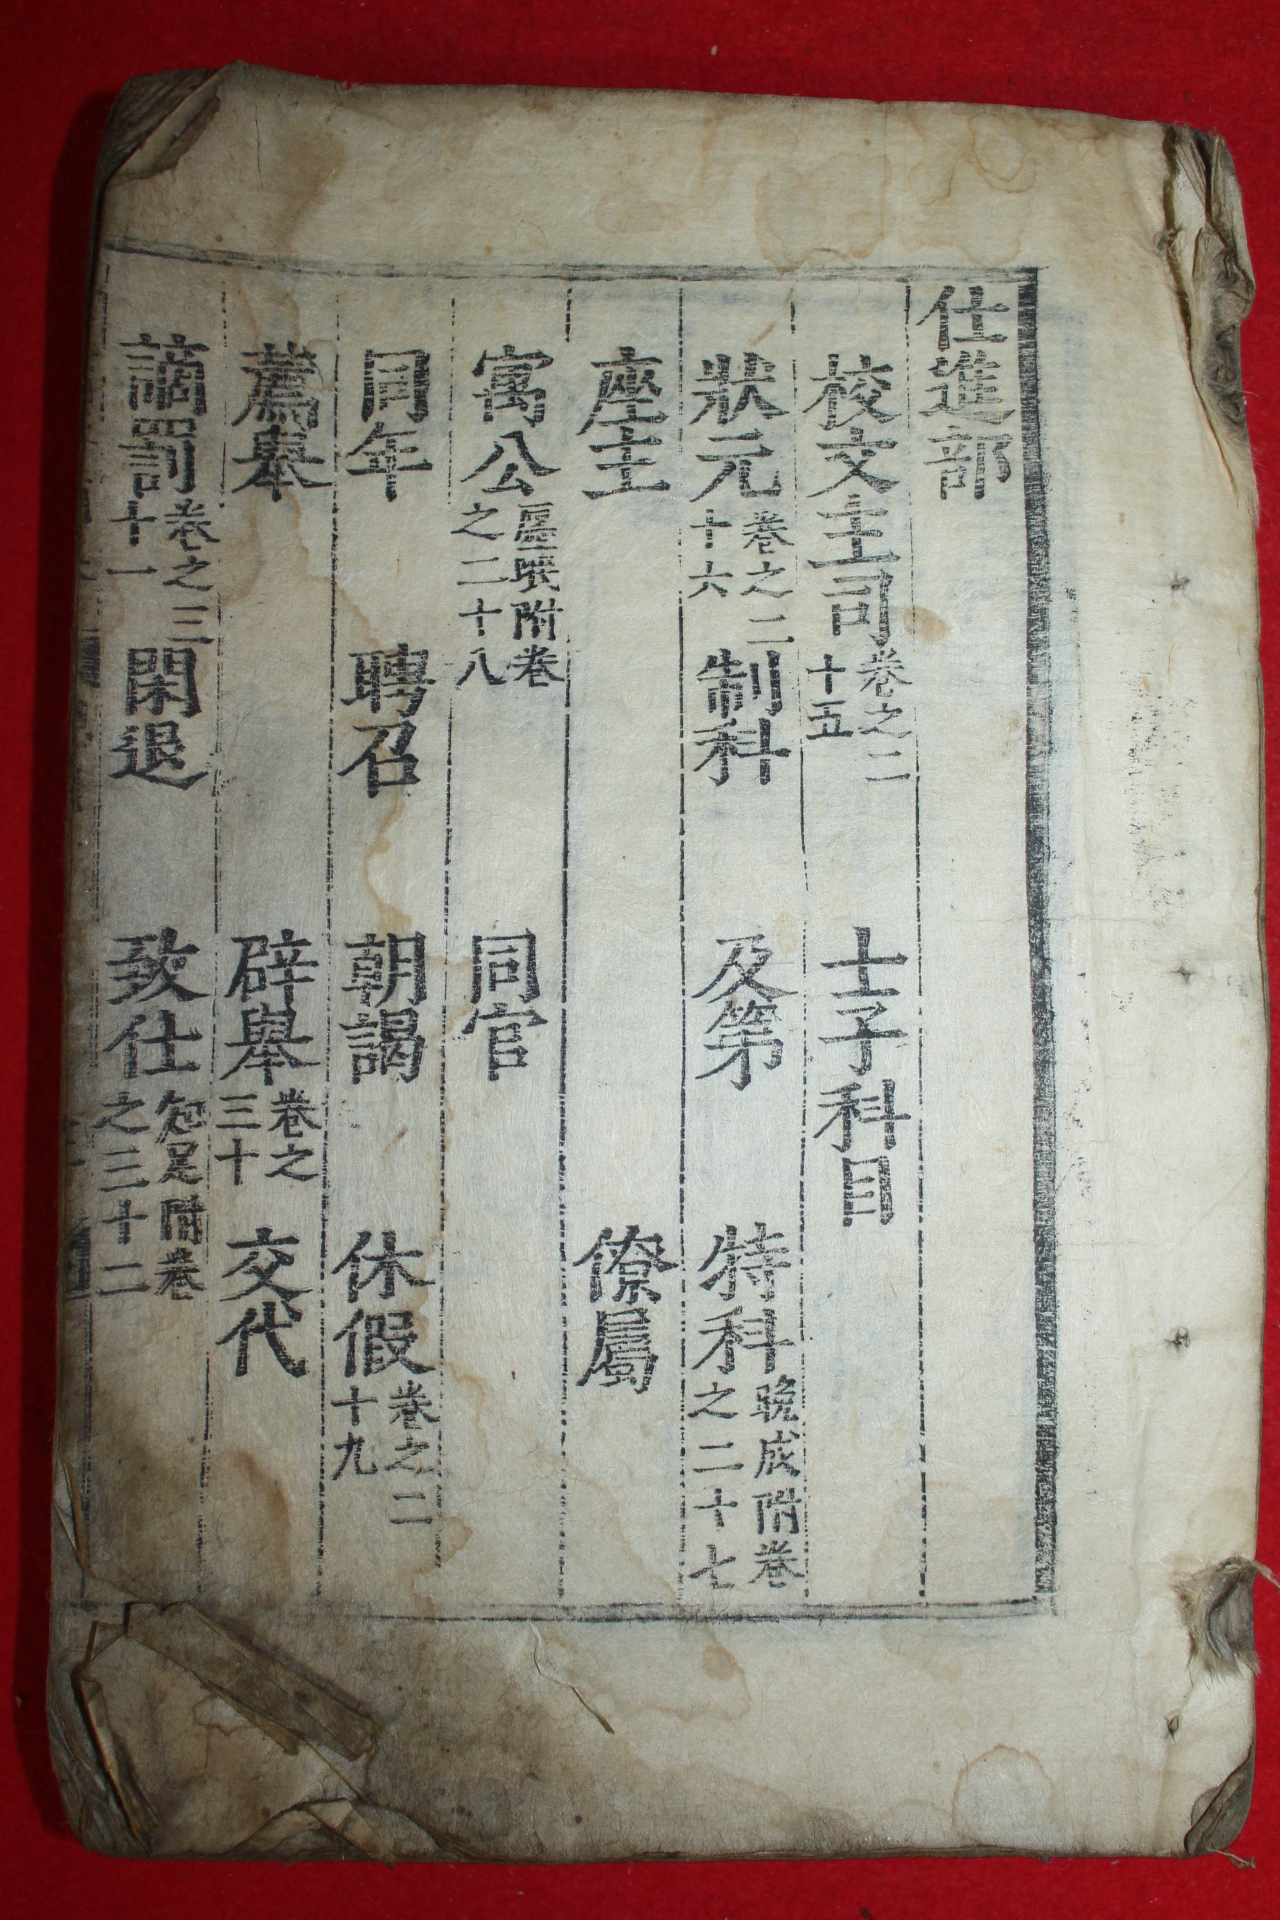 仕進部
校文主司 卷之二十五 士子科目
狀元 卷之二十六 制科 及第 特科 晚成附卷之二十七
座主 僚屬
寓公 居攝附卷之二十八 同官
同年 聘召 朝謁 休假 卷之二十九
薦舉 辟舉 卷之三十 交代
謫罰 卷之三十一 閑退 致仕 知足附卷之三十二